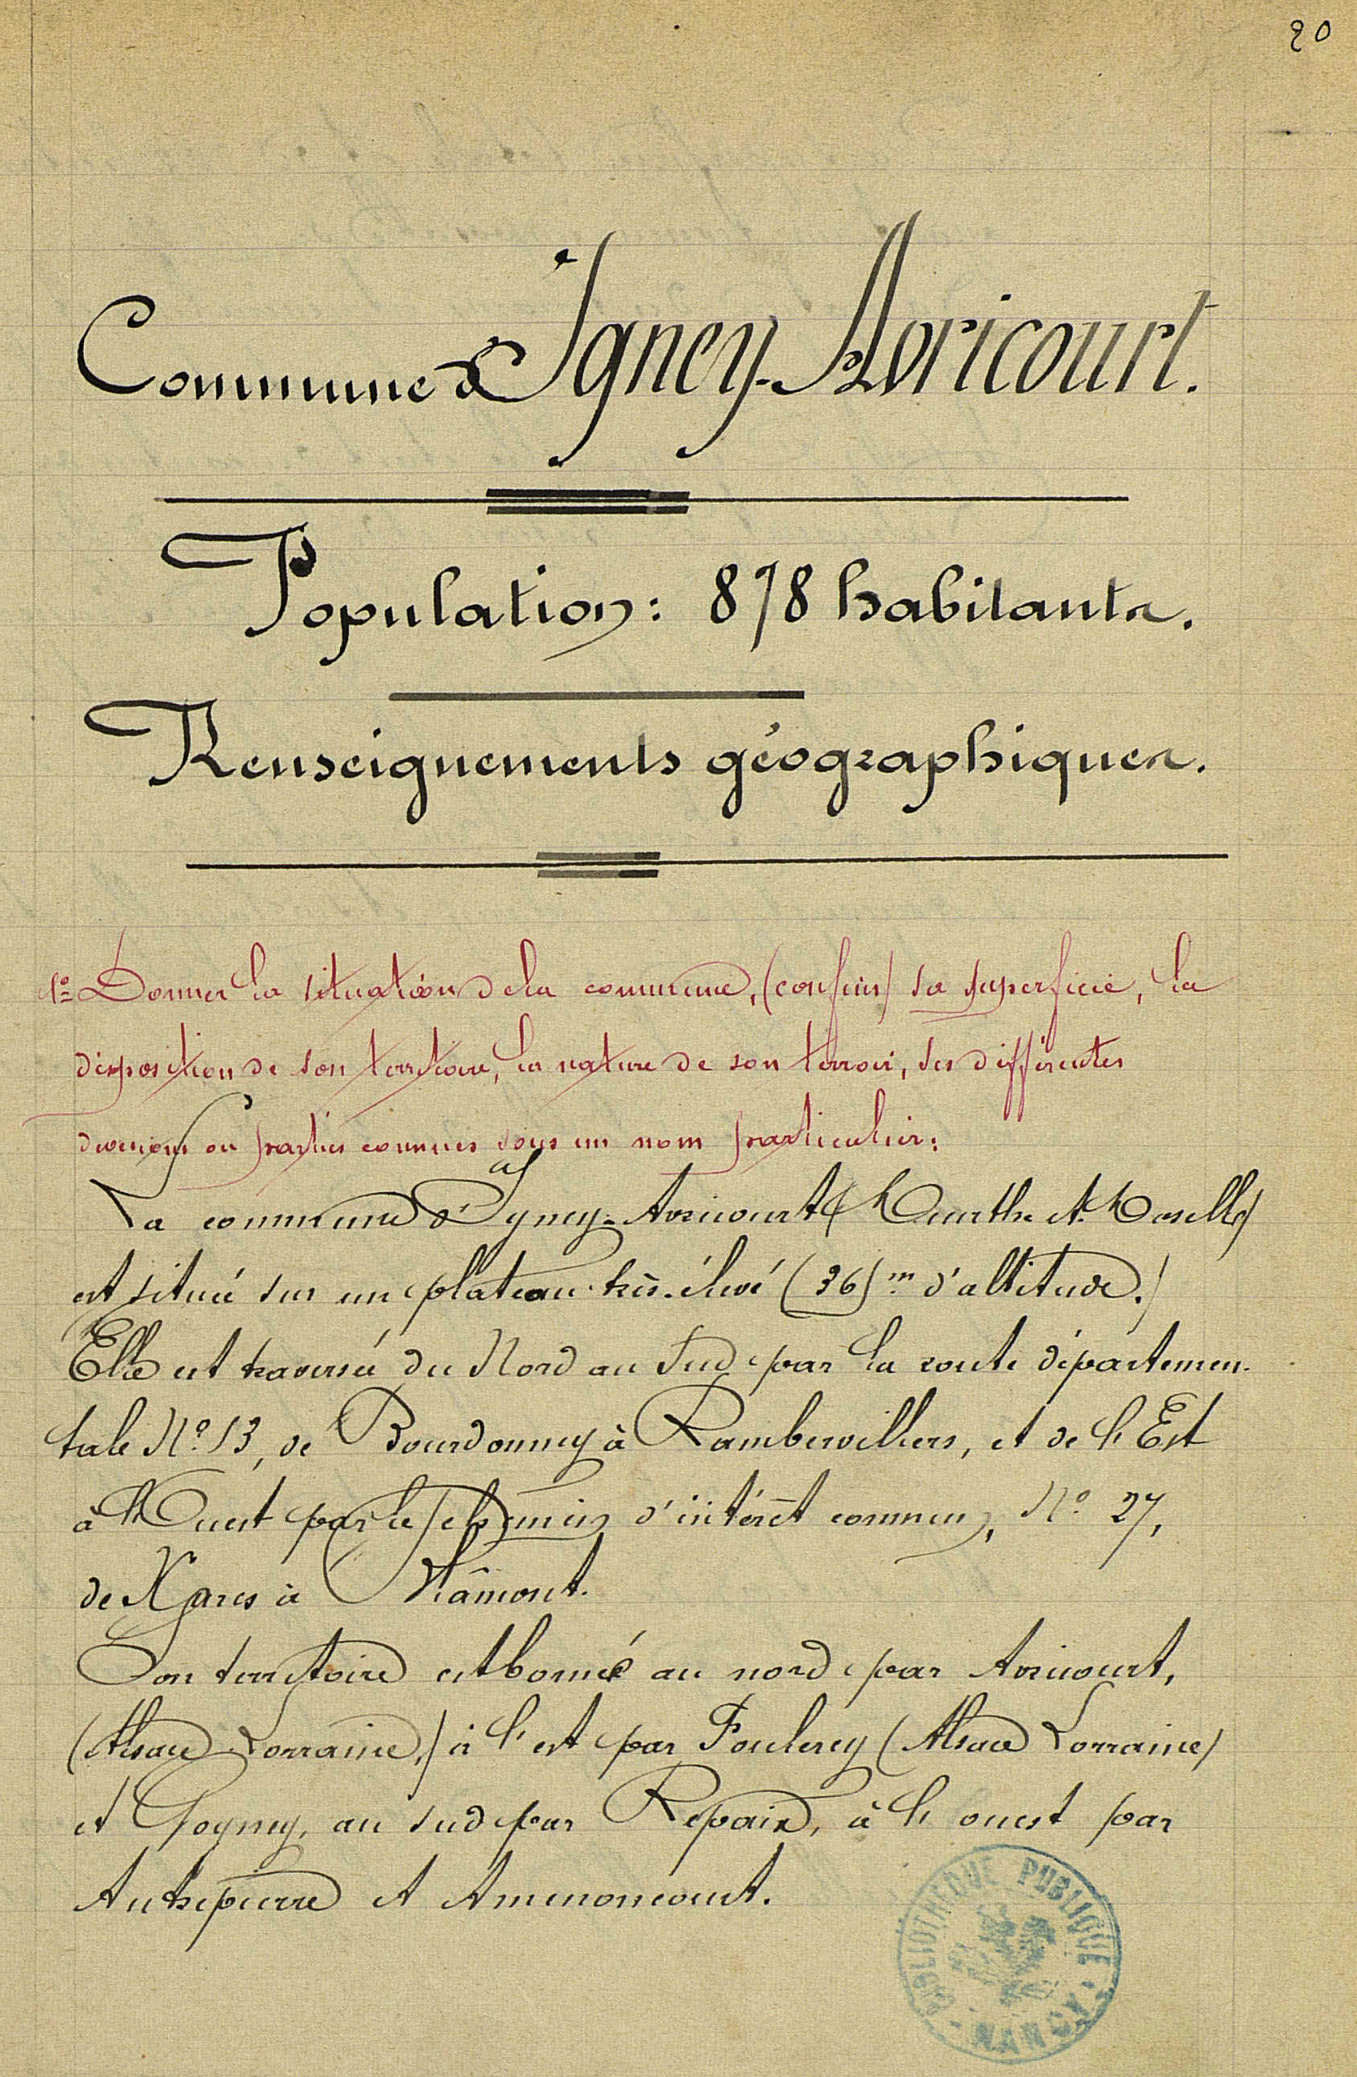 20
Commune d'Igney-Avricourt.
Population: 878 habitants.
Renseignements géographiques.
1º Donner la situation de la commune, (confins) sa superficie, la
disposition de son territoire, la nature de son terroir, ses différentes
divisions ou parties connues sous un nom particulier:
La commune d'Igney-Avricourt (Meurthe et Moselle)
est situé sur un plateau très-élevé (361m d'altitude.)
Elle est traversée du Nord au Sud par la route départemen-
tale Nº 13, de Bourdonnay à Rambervillers, et de l'Est
à l'Ouest par le chemin d'intérêt commun, Nº 27,
de Xures à Blâmont.
Son territoire est borné au nord par Avricourt,
(Alsace Lorraine,) à l'est par Foulcrey (Alsace Lorraine)
et Gogney, au sud par Repaix, à l'ouest par
Autrepierre et Amenoncourt.
BIBLIOTHÈQUE PUBLIQUE
NANCY